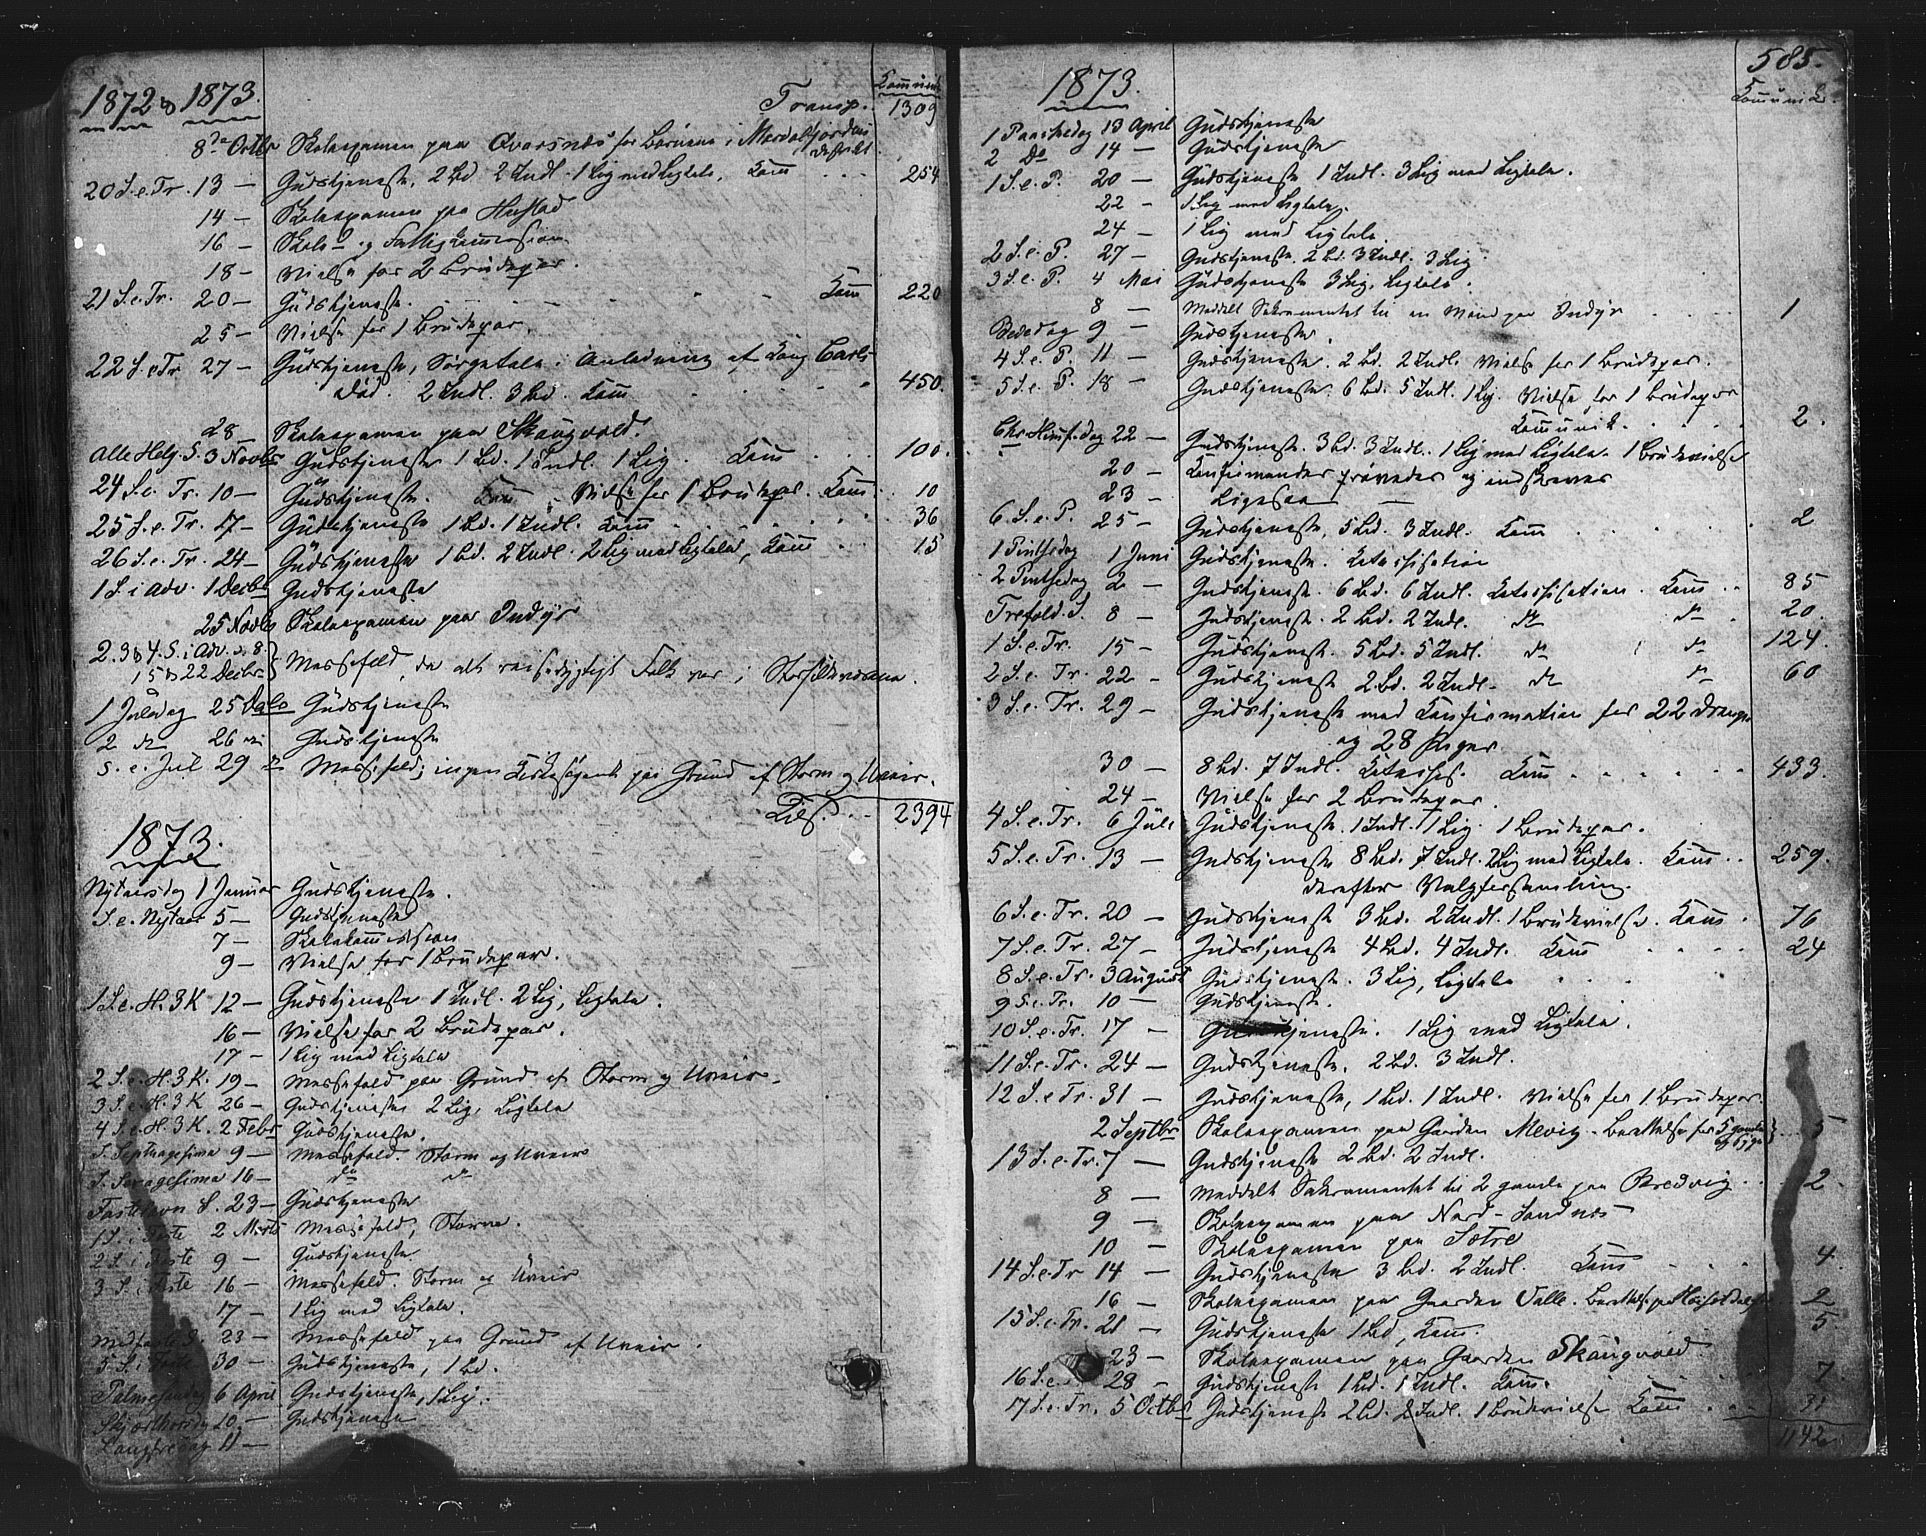 1872 & 1873.
Transp.
Kommunik.
1309
8de Octbr Skoleexamen paa Qvarsnæs for Børnene i Mordalsfjordens
distrikt
20 S.e.Tr. 13 — Gudstjeneste, 2 Bd 2 Indl. 1 Lig med Ligtale. Kom . . . 254
14 — Skoleexamen paa Hustad
16 — Skole- og Fattigkommission
18 — Vielse for 2 Brudepar.
21 S.e.Tr. 20 — Gudstjeneste. Kom 220
25 — Vielse for 1 Brudepar.
22 S.e.Tr 27 — Gudstjeneste, Sørgetale i Anledning af Kong Carls
Død. 2 Indl. 3 Bd. Kom . . . 450.
28 Skoleexamen paa Skaugvold.
Alle Helg. S. 3 Novbr Gudstjeneste 1 Bd. 1 Indl. 1 Lig. Kom . . . 100.
24 S.e. Tr. 10 — Gudstjeneste. Kom. Vielse for 1 Brudepar. Kom . 10
25 S.e.Tr. 17 — Gudstjeneste 1 Bd. 1 Indl. Kom . . . 36
26 S.e.Tr. 24 — Gudstjeneste 1 Bd. 2 Indl. 2 Lig med Ligtale, Kom . . . 15
1 S. i Adv. 1 Decbr Gudstjeneste
25 Novbr Skoleexamen paa Indyr
2. 3 & 4. S. i Adv. d. 8.
15 & 22 Decbr. Messefald, da alt reisedygtigt Folk var i Storsildværerne.
1 Juledag 25 Decbr Gudstjeneste
2 do 26 do Gudstjeneste
S. e. Jul 29 do Messefald, ingen Kirkesøgende paa Grund af Storm og Uveir.
Tils. . . 2394
1873.
Nytaarsdag 1 Januar Gudstjeneste.
S. e. Nytaar 5 — Gudstjeneste
7 — Skolekommission
9 — Vielse for 1 Brudepar.
1 S.e. H. 3 K 12 — Gudstjeneste 1 Indl. 2 Lig, Ligtale.
16 — Vielse for 2 Brudepar.
17 — 1 Lig med Ligtale
2 S.e. H. 3 K. 19 — Messefald paa Grund af Storm og Uveir.
3 S.e. H. 3 K 26 — Gudstjeneste 2 Lig, Ligtale
4 S.e. H. 3 K. 2 Febr Gudstjeneste.
S. Septuagesima 9 — Messefald. Storm og Uveir
S. Sexagesima 16 — do do
Fastelavn S. 23 — Gudstjeneste
1 S. i Faste 2 Marts Messefald, Storm.
2 S. i Faste 9 — Gudstjeneste
3 S. i Faste 16 — Messefald. Storm og Uveir
17 — 1 Lig med Ligtale.
Midfaste S. 23 — Messefald paa Grund af Uveir.
5 S. i Faste 30 — Gudstjeneste, 1 Bd.
Palmesøndag 6 April Gudstjeneste, 1 Lig.
Skjærthorsdag 10 — Gudstjeneste
Langfredag 11 —
585.
1873.
Kommunik.
1 Paaskedag 13 April Gudstjeneste
2 Do 14 — Gudstjeneste
1 S.e. P. 20 — Gudstjeneste 1 Indl. 3 Lig med Ligtale.
22 — 1 Lig med Ligtale.
24 — 1 Lig med Ligtale
2 S.e. P. 27 — Gudstjeneste. 2 Bd. 3 Indl. 3 Lig.
3 S.e. P. 4 Mai Gudstjeneste 3 Lig, Ligtale.
8 — Meddelt Sakramentet til en Mand paa Indyr . . . 1
Bededag 9 — Gudstjeneste.
4 S.e. P. 11 — Gudstjeneste. 2 Bd. 2 Indl. Vielse for 1 Brudepar.
5 S.e. P. 18 — Gudstjeneste. 6 Bd. 5 Indl. 1 Lig. Vielse for 1 Brudepar
Kommunik. . . . 2.
Chr. Himf.dag 22 — Gudstjeneste. 3 Bd. 3 Indl. 1 Lig med Ligtale. 1 Brudevielse
20 — Konfirmander prøvedes og indskreves
23 — Ligesaa —
6. S.e. P. 25 — Gudstjeneste, 5 Bd. 3 Indl. Kom . . . 2
1 Pintsedag 1 Juni Gudstjeneste. Katechisation
2 Pintsedag 2 — Gudstjeneste. 6 Bd. 6 Indl. Katechisation. Kom . . 85
Trefold. S. 8 — Gudstjeneste. 2 Bd. 2 Indl. do do 20.
1 S.e. Tr. 15 — Gudstjeneste. 5 Bd. 5 Indl. do do 124.
2 S.e. Tr. 22 — Gudstjeneste 2 Bd. 2 Indl. do do 60
3 S.e. Tr. 29 — Gudstjeneste med Konfirmation for 22 Drenge
og 28 Piger.
30 — 8 Bd. 7 Indl. Kateches. Kom . . . 433.
24 — Vielse for 2 Brudepar.
4 S.e. Tr. 6 Juli Gudstjeneste. 1 Indl. 1 Lig. 1 Brudepar.
5 S.e. Tr. 13 — Gudstjeneste 8 Bd. 7 Indl. 2 Lig med Ligtale. Kom . . 259.
Derefter Valgforsamling.
6 S.e. Tr. 20 — Gudstjeneste 3 Bd. 2 Indl. 1 Brudevielse. Kom . 76
7 S.e. Tr. 27 — Gudstjeneste 4 Bd. 4 Indl. Kom . . . 24
8 S.e. Tr. 3 August Gudstjeneste. 3 Lig, Ligtale
9 S.e. Tr. 10 — Gudstjeneste.
10 S.e. Tr. 17 — Gudstjeneste. 1 Lig med Ligtale.
11 S.e. Tr. 24 — Gudstjeneste, 2 Bd. 3 Indl.
12 S.e Tr. 31 — Gudstjeneste, 1 Bd. 1 Indl. Vielse for 1 Brudepar.
2 Septbr Skoleexamen paa Gaarden Mevig. Berettelse for 5 gamle
og syge . . . 5
13 S.e. Tr. 7 — Gudstjeneste 2 Bd. 2 Indl.
8 — Meddelt Sakramentet til 2 gamle paa Bredvig . . 2.
9 — Skoleexamen paa Nord-Sandnæs
10 — Skoleexamen paa Sætre
14 S.e. Tr 14 — Gudstjeneste 3 Bd. 2 Indl. Kom . . . 4.
16 — Skoleexamen paa Gaarden Valle. Berettelse 2
15 S.e. Tr. 21 — Gudstjeneste 1 Bd, Kom. 5.
23 — Skoleexamen paa Gaarden Skaugvold
16 S.e. 28 — Gudstjeneste 1 Bd. 1 Indl. Kom. . . . 7.
17 S.e. Tr. 5 Octbr Gudstjeneste 2 Bd. 2 Indl. 1 Brudevielse Kom . . . 31
1142